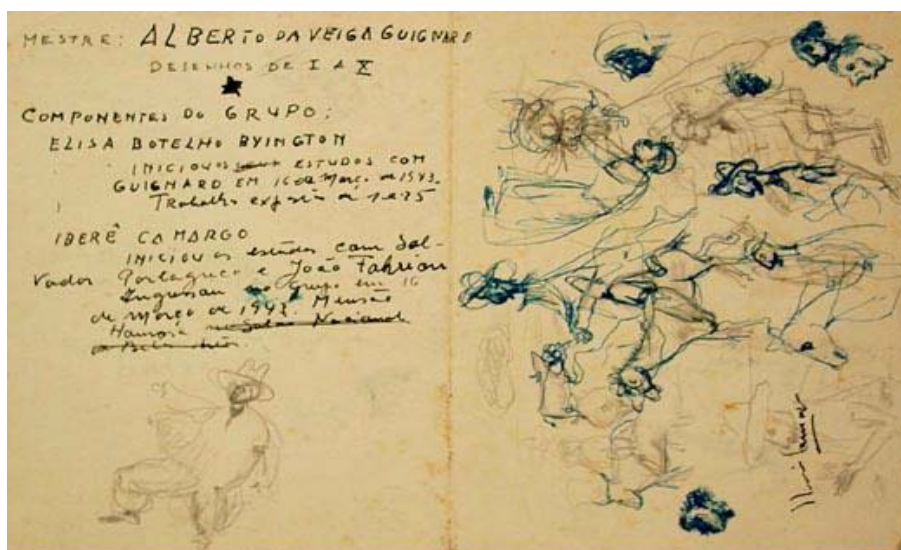 MESTRE: ALBERTO DA VEIGA GUIGNARD
DESENHOS DE I A X
COMPONENTES DO GRUPO:
ELISA BOTELHO BYINGTON
INICIOU SEUS ESTUDOS COM
GUIGNARD EM 16 de Março de 1943.
Trabalhos de 1 a 25
IBERÊ CAMARGO
INICIOU os estudos com Sal-
vador e João Fahrion
no Grupo em 16
de março de 1943. Mensão
Honrosa no Salão Nacional
de Belas Artes